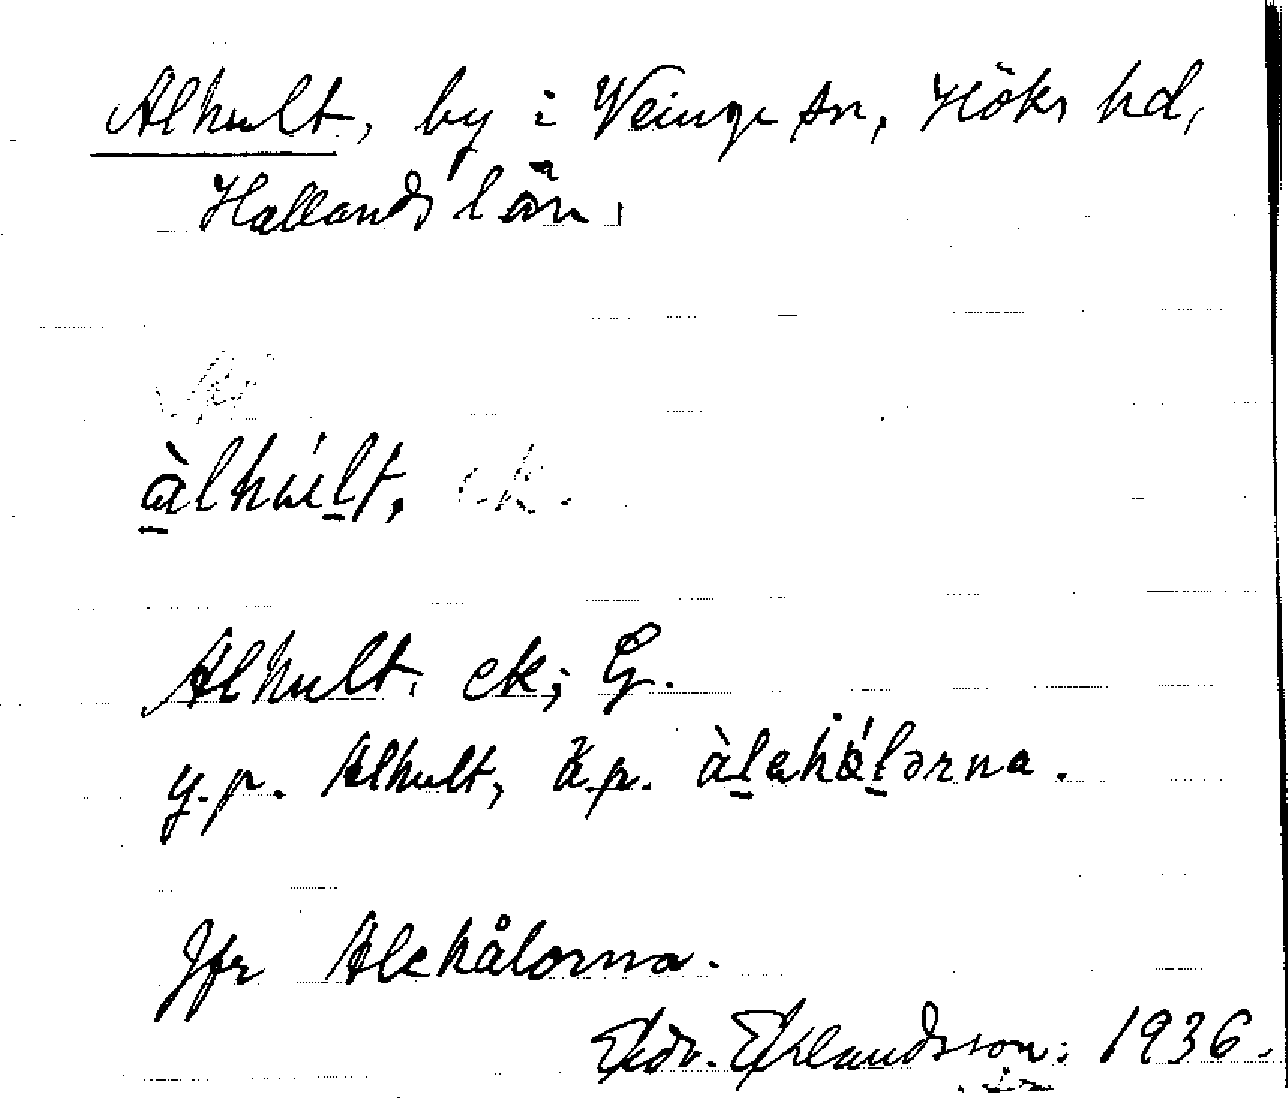 Alhult, by i Veinge sn, Höks hd,
Hallands län.
àlhúlt, ek.
Alhult, ek; G.
y.p. Alhult, ä.p. àlehǻlərna.
Jfr Alehålorna.
Edv. Erlandsson. 1936.